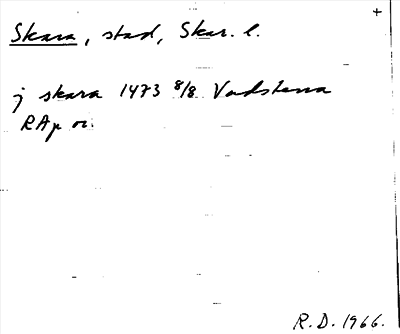 +
Skara, stad, Skar. l.
j skara 1473 8/8 Vadstena
RAp or.
R.D. 1966.